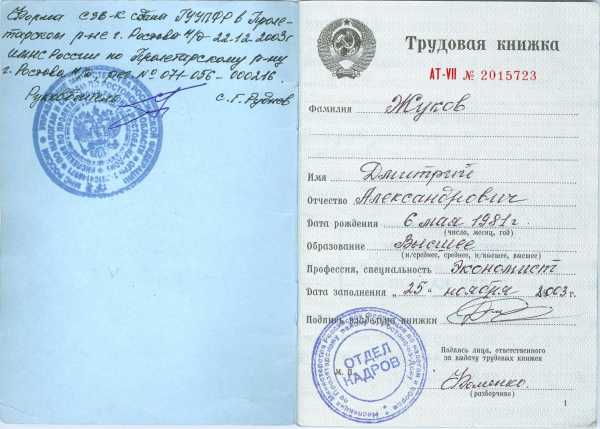 Форма СЗВ-К сдана ГУУПФР в Проле-
тарском р-не г. Ростова н/Д 22.12.2003г
ИМНС России по Пролетарскому р-ну
г. Ростова н/Д рег. № 071-056-000216
Руководитель С.Г. Руднов
Трудовая книжка
АТ-VII № 2015723
Фамилия Жуков
Имя Дмитрий
Отчество Александрович
Дата рождения 6 мая 1981г.
(число, месяц, год)
Образование Высшее
(н/среднее, среднее, н/высшее, высшее)
Профессия, специальность Экономист
Дата заполнения „25" ноября 2003г.
Подпись владельца книжки
ОТДЕЛ
КАДРОВ
М. П.
Подпись лица, ответственного
за выдачу трудовых книжек
(разборчиво)
1